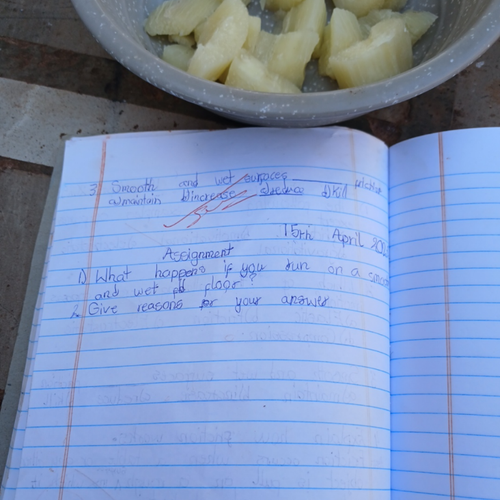 3. Smooth and wet surfaces ______ friction
a) maintain b) increase c) reduce d) kill
15th April 20
Assignment
1) What happens if you run on a smooth
and wet floor?
2. Give reasons for your answer